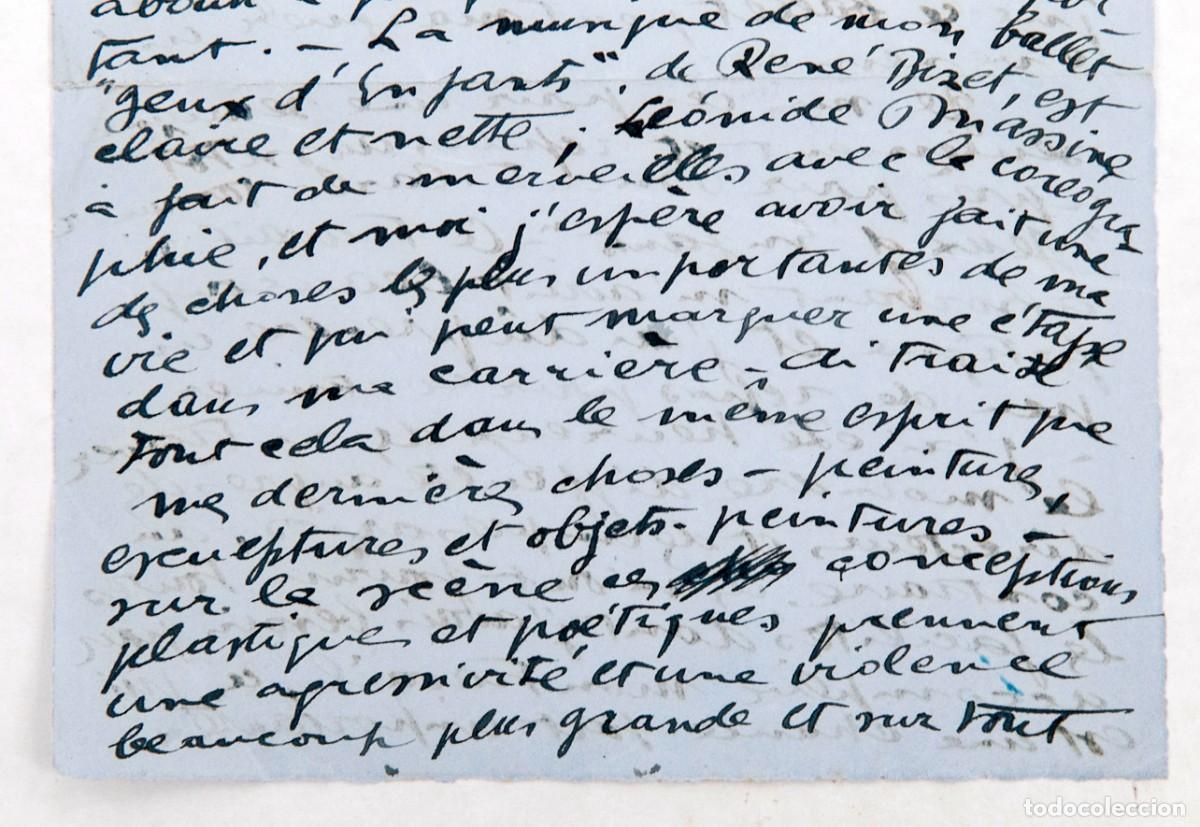 tant. – La musique de mon ballet
"geux d'Enfants", de René Bizet, est
claire et nette; Léonide Massine
à fait de merveilles avec la coreógra
phie, et moi j'espère avoir fait une
de choses les plus importantes de ma
vie et qui peut marquer une étape
dans ma carrière – ai traité
tout cela dans le même esprit que
mes dernières choses – peintures,
esculptures et objets – peintures
sur la scène ces conceptions
plastiques et poétiques prennent
une agressivité et une violence
beaucoup plus grande et sur tout
todocoleccion